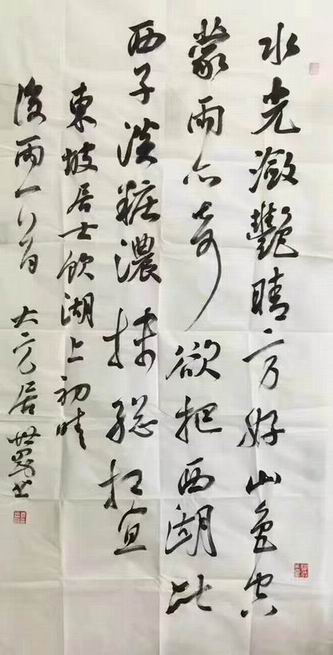 水光潋艳晴方好山色空
蒙雨亦奇欲把西湖比
西子淡粧濃抹總相宜
東坡居士飲湖上初晴
後雨一首 大元居世